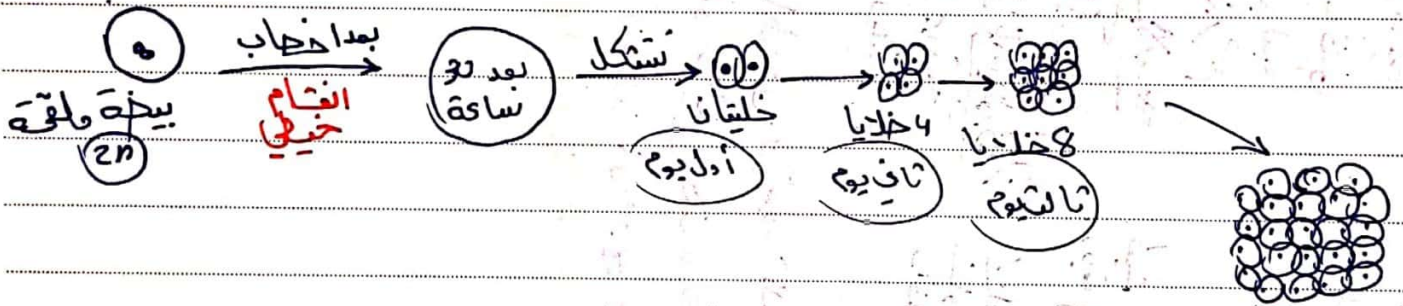 بيضة ملقحة
2n
بعد إخصاب
انقسام
خيطي
بعد 30
ساعة
تتشكل
خليتان
أول يوم
4 خلايا
ثاني يوم
8 خلايا
ثالث يوم